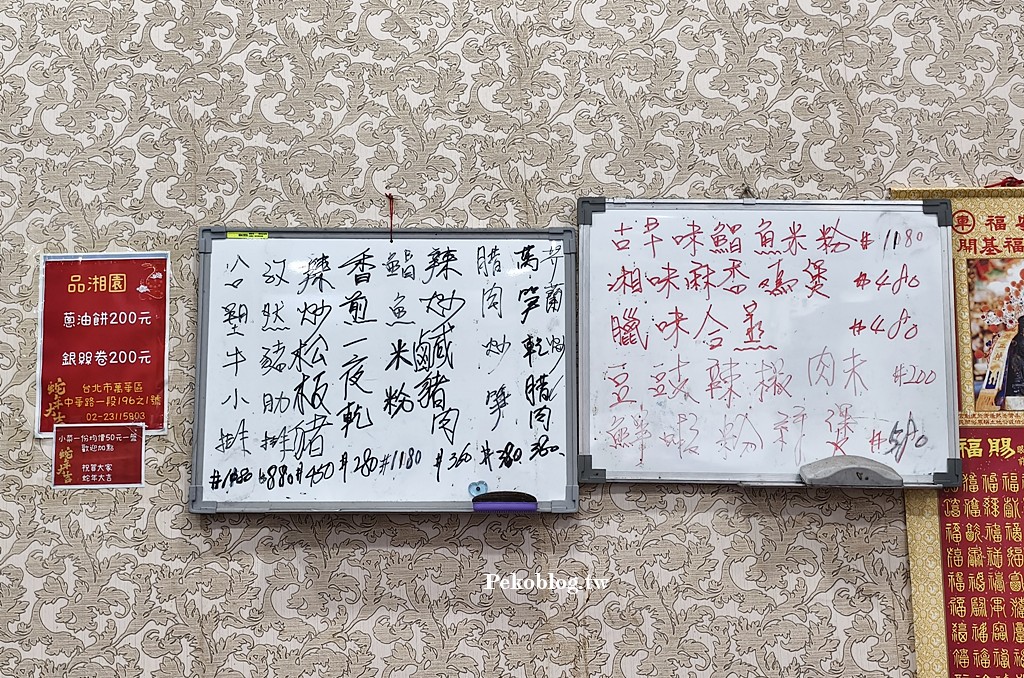 品湘園
蔥油餅200元
銀絲卷200元
台北市萬華區
中華路一段196之1號
02-23115803
小菜一份均價50元一盤
歡迎加點
祝賀大家
蛇年大吉
牛小排
孜然豬肋排 880
辣炒松板豬 #450
香煎一夜乾 #280
鯧魚米粉 #1180
辣炒鹹豬肉 #360
臘肉炒筍 #380
臘肉 360
古早味鯧魚米粉 #1180
湘味麻香煲 #480
臘味合蒸 #480
豆豉辣椒肉末 #200
鮮蝦粉絲煲 #580
福
開基福
賜福
Pekoblog.tw